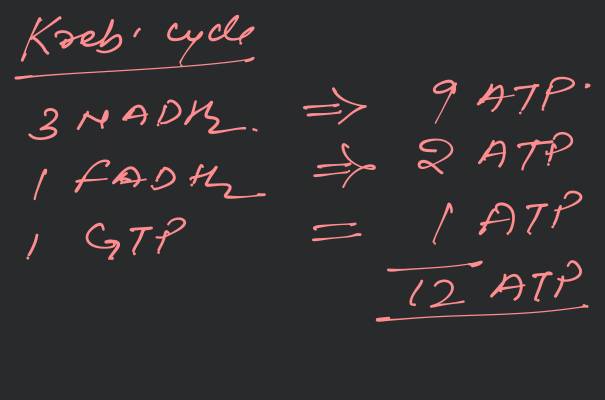 Kreb' cycle
3 NADH2. ⇒ 9 ATP.
1 FADH2 ⇒ 2 ATP
1 GTP = 1 ATP
12 ATP